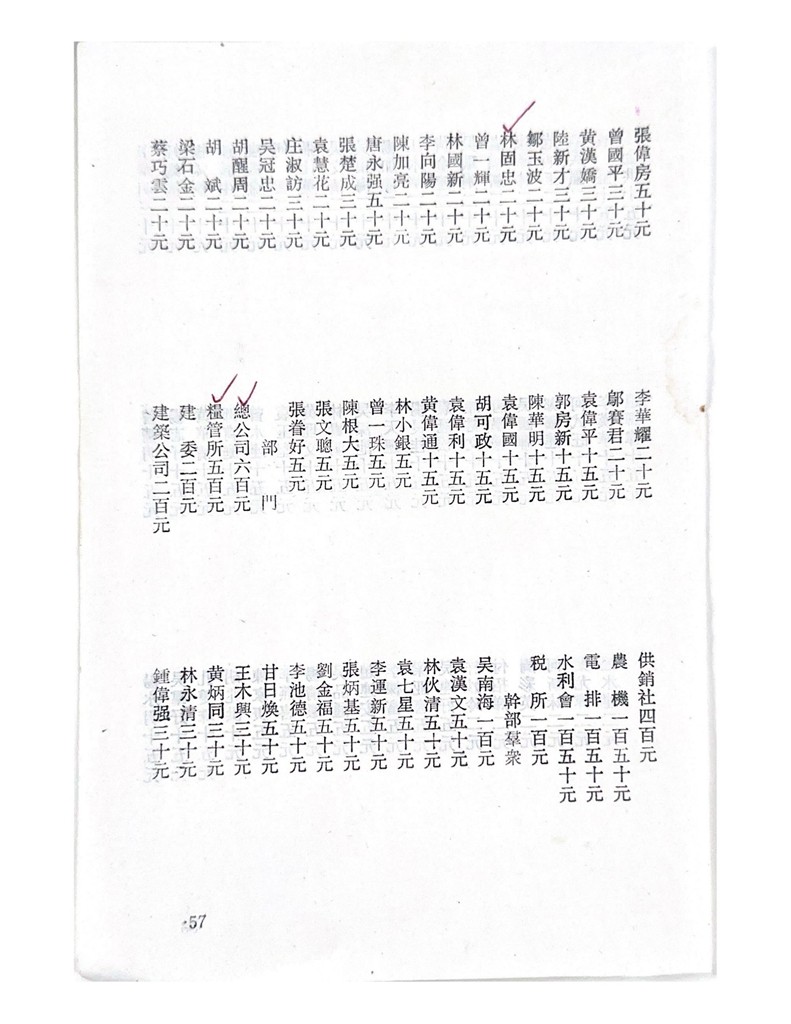 張偉房五十元
曾國平三十元
黃漢嬌三十元
陸新才三十元
鄒玉波二十元
林固忠二十元
曾一輝二十元
林國新二十元
李向陽二十元
陳加亮二十元
唐永强五十元
張楚成三十元
袁慧花二十元
庄淑訪三十元
吴冠忠二十元
胡醒周二十元
胡　斌二十元
梁石金二十元
蔡巧雲二十元
李華耀二十元
鄔賽君二十元
袁偉平十五元
郭房新十五元
陳華明十五元
袁偉國十五元
胡可政十五元
袁偉利十五元
黄偉通十五元
林小銀五元
曾一珠五元
陳根大五元
張文聰五元
張眷好五元
部　門
總公司六百元
糧管所五百元
建　委二百元
建築公司二百元
供銷社四百元
農　機一百五十元
電　排一百五十元
水利會一百五十元
税　所一百元
幹部羣衆
吴南海一百元
袁漢文五十元
林伙清五十元
袁七星五十元
李運新五十元
張炳基五十元
劉金福五十元
李池德五十元
甘日煥五十元
王木興三十元
黄炳同三十元
林永清三十元
鍾偉强三十元
57